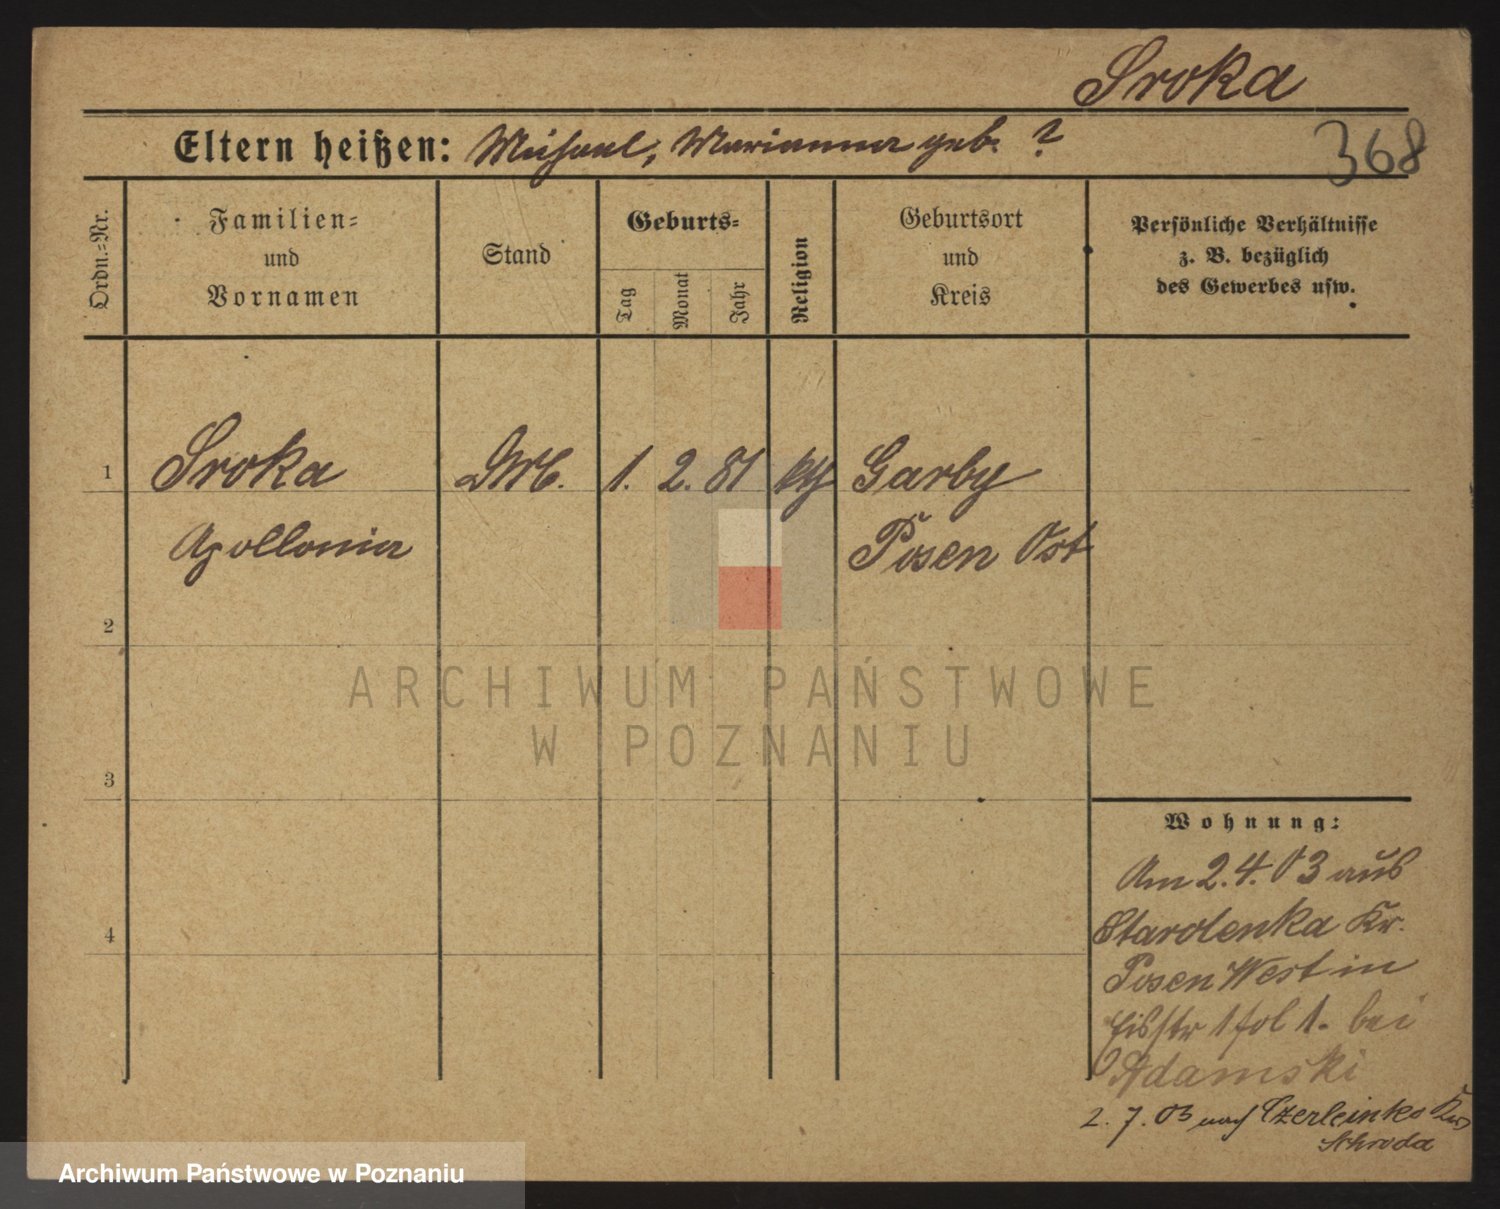 Sroka
Eltern heißen: Michael, Marianna geb. ?
368
Ordn.-Nr.
Familien-
und
Vornamen
Stand
Geburts-
Tag
Monat
Jahr
Religion
Geburtsort
und
Kreis
Persönliche Verhältnisse
z. B. bezüglich
des Gewerbes usw.
1 Sroka DM. 1. 2. 81 kth Garby
Apollonia Posen Ost
2
ARCHIWUM PAŃSTWOWE
W POZNANIU
3
Wohnung:
Am 2.4.03 aus
4
Starolenka Kr.
Posen West in
1 fol 1. bei
Adamski
2. 7. 03 nach Czerleinko
Schroda
Archiwum Państwowe w Poznaniu